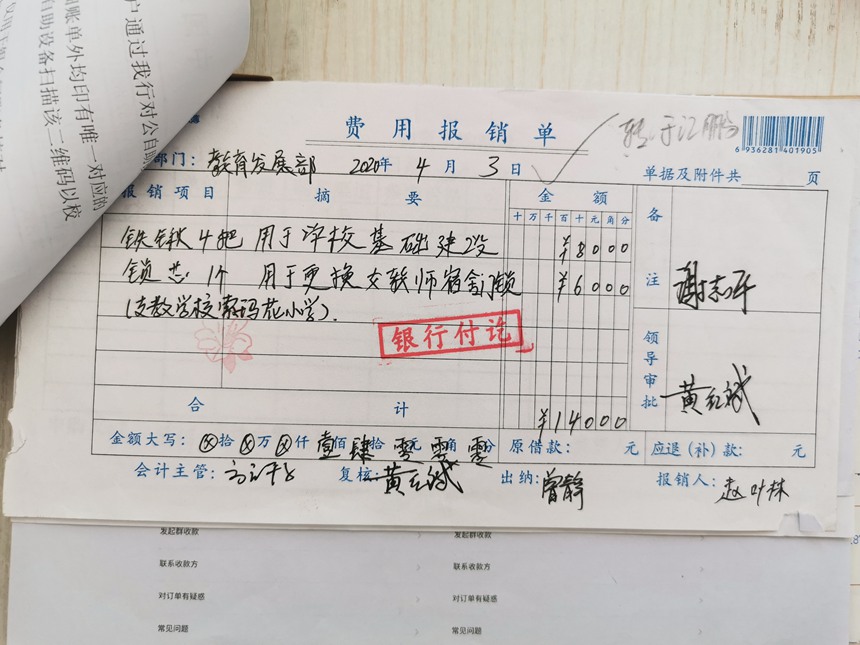 户通过我行对公自助
账单外均印有唯一对应的
自助设备扫描该二维码以校
费用报销单
转:于江鹏
6 936281 401905
部门: 教育发展部 2020年 4月 3日
单据及附件共 页
报销项目 摘要 金额 备注
十万千百十元角分
铁锹4把 用于学校基础建设 ¥8000
锁芯1个 用于更换支教师宿舍门锁 ¥6000
(支教学校索玛花小学).
谢志平
银行付讫
领导审批
黄红斌
合计 ¥14000
金额大写: ⊗拾⊗万⊗仟壹佰肆拾零元零角零分 原借款: 元 应退(补)款: 元
会计主管: 复核: 黄红斌 出纳: 曾静 报销人: 赵叶林
发起群收款 发起群收款
联系收款方 联系收款方
对订单有疑惑 对订单有疑惑
常见问题 常见问题